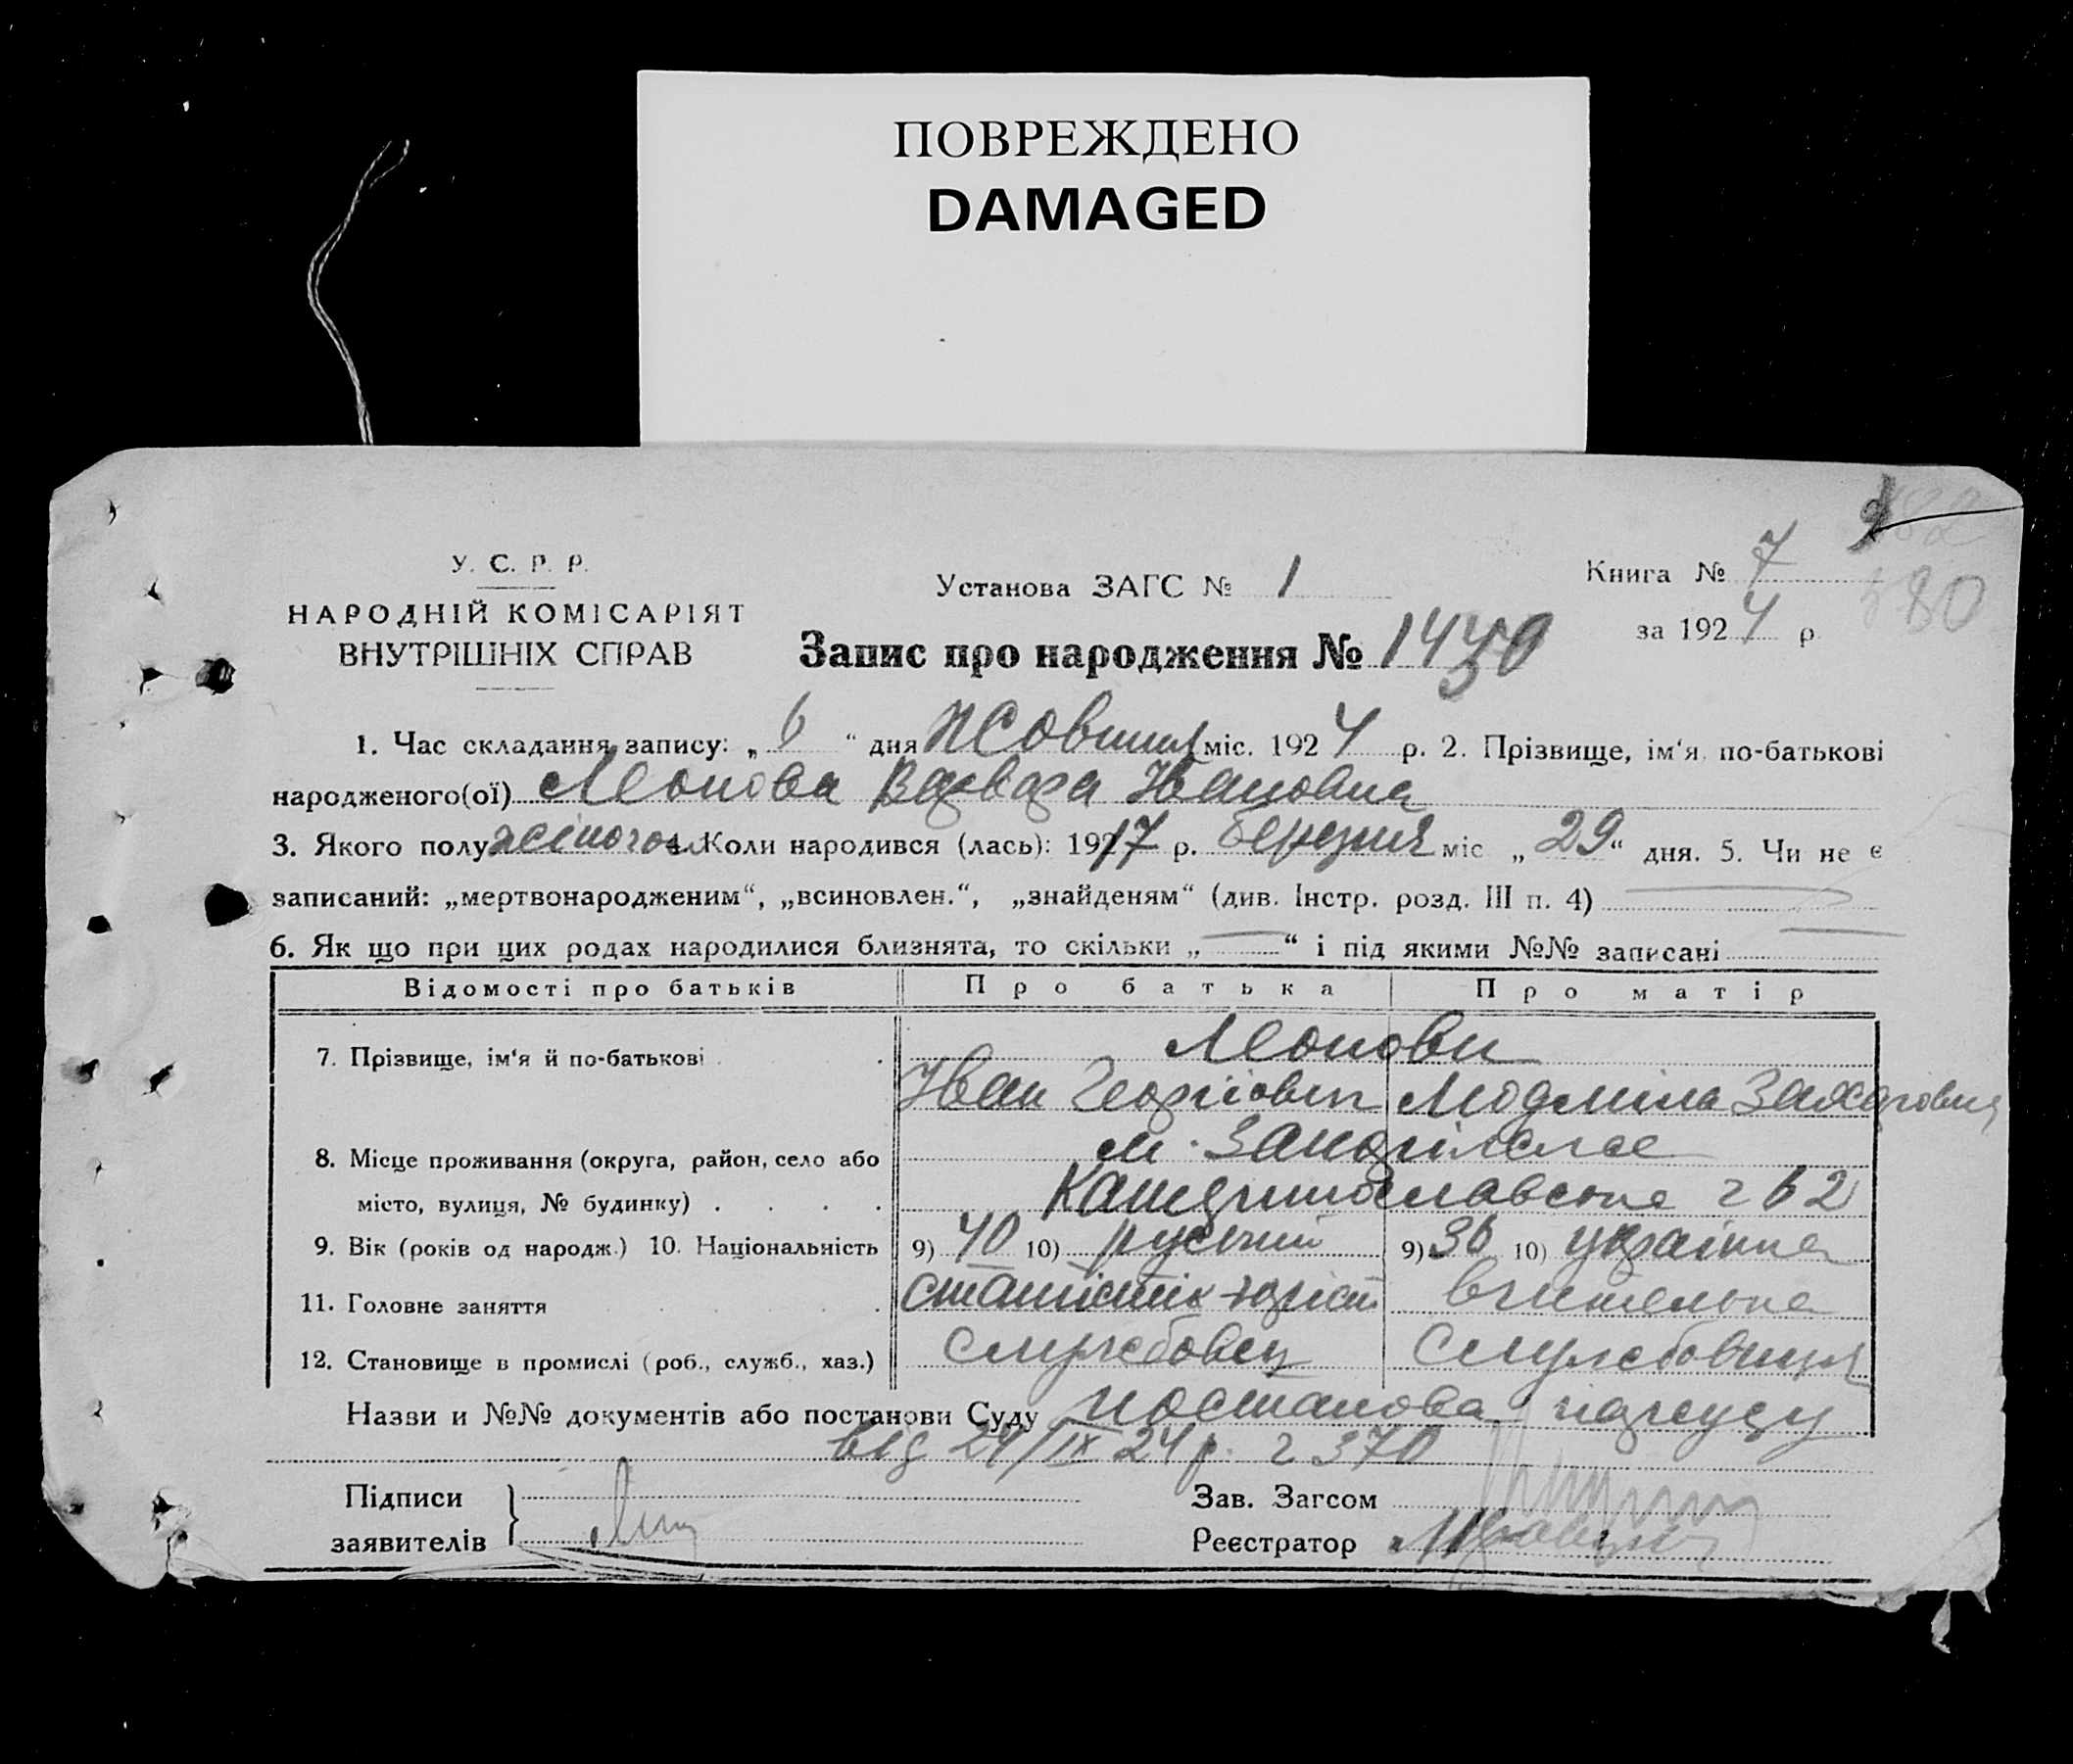 ПОВРЕЖДЕНО
DAMAGED
У. С. Р. Р.
НАРОДНІЙ КОМІСАРІЯТ
ВНУТРІШНІХ СПРАВ
Установа ЗАГС № 1
Книга № 7
за 1924 р
380
Запис про народження №
1. Час складання запису: „6“ дня Жовтня міс. 1924 р. 2. Прізвище, ім‘я, по-батькові
народженого(ої) Леонова Варвара Івановна
3. Якого полу жіночого 4. Коли народився (лась): 1917 р. березня міс „29“ дня. 5. Чи не є
записаний: „мертвонародженим“, „всиновлен.“, „знайденям“ (див. Інстр. розд. III п. 4)
6. Як що при цих родах народилися близнята, то скільки „—“ і під якими №№ записані
Відомості про батьків Про батька Про матір
7. Прізвище, ім‘я й по-батькові Леонови
Іван Георгіович Людміла Захаровна
8. Місце проживання (округа, район, село або м. Запоріжжє
місто, вулиця, № будинку) Катеринославська ч 62
9. Вік (років од народж.) 10. Національність 9) 40 10) руський 9) 36 10) українка
11. Головне заняття статистік-юріст вчителька
12. Становище в промислі (роб., служб., хаз.) службовец службовиця
Назви и №№ документів або постанови Суду постанова нарсуду
від 24/IX 24 р. ч 370
Підписи
заявителів
Зав. Загсом
Реєстратор